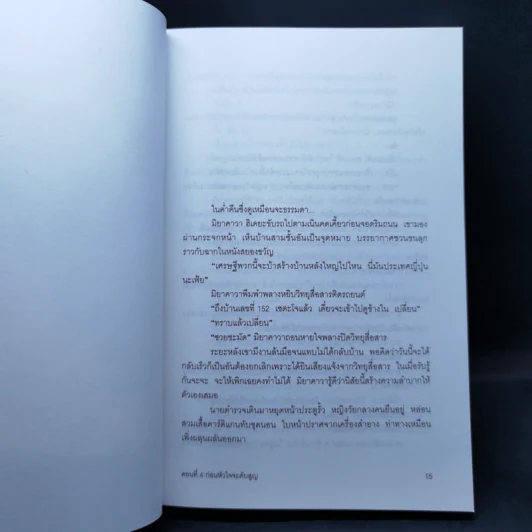 ในค่ำคืนซึ่งดูเหมือนจะธรรมดา...
มิยาคาวา ฮิเดยะขับรถไปตามเนินคดเคี้ยวก่อนจอดริมถนน เขามอง
ผ่านกระจกหน้า เห็นบ้านสามชั้นอันเป็นจุดหมาย บรรยากาศชวนขนลุก
ราวกับฉากในหนังสยองขวัญ
“เศรษฐีพวกนี้จะบ้าสร้างบ้านหลังใหญ่ไปไหน นี่มันประเทศญี่ปุ่น
นะเฟ้ย”
มิยาคาวาพึมพำพลางหยิบวิทยุสื่อสารติดรถยนต์
“ถึงบ้านเลขที่ 152 เซตะโจแล้ว เดี๋ยวจะเข้าไปดูข้างใน เปลี่ยน”
“ทราบแล้วเปลี่ยน”
“ซวยชะมัด” มิยาคาวาถอนหายใจพลางปิดวิทยุสื่อสาร
ระยะหลังเขามีงานล้นมือจนแทบไม่ได้กลับบ้าน พอคิดว่าวันนี้จะได้
กลับเร็วก็เป็นอันต้องยกเลิกเพราะได้ยินเสียงแจ้งจากวิทยุสื่อสาร ในเมื่อรับรู้
กันจะจะ จะให้เพิกเฉยคงทำไม่ได้ มิยาคาวารู้ดีว่านิสัยนี้สร้างความลำบากให้
ตัวเองเสมอ
นายตำรวจเดินมาหยุดหน้าประตูรั้ว หญิงวัยกลางคนยืนอยู่ หล่อน
สวมเสื้อคาร์ดิแกนทับชุดนอน ใบหน้าปราศจากเครื่องสำอาง ท่าทางเหมือน
เพิ่งผลุนผลันออกมา
ตอนที่ ๑ ก่อนหัวใจจะดับสูญ 15